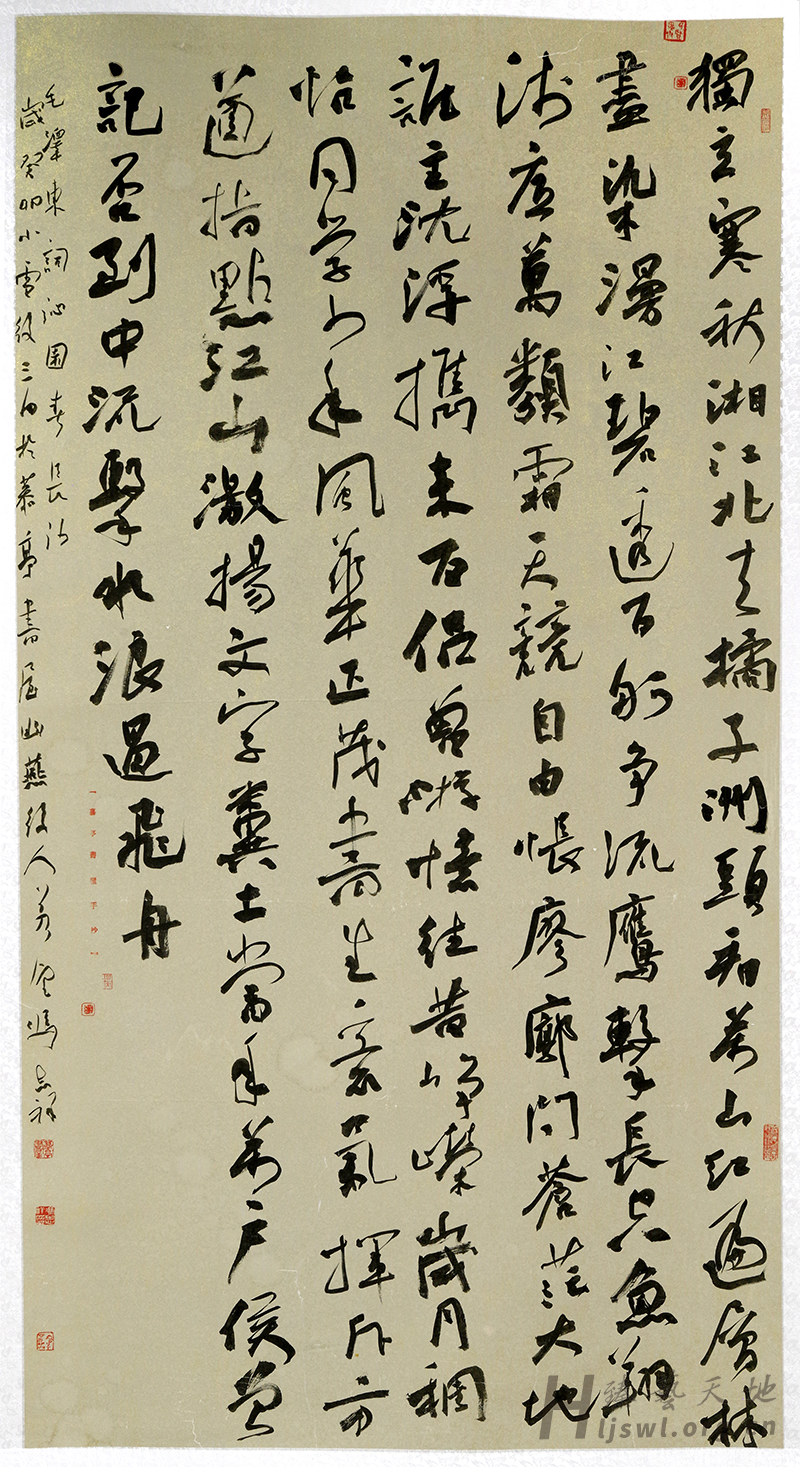 獨立寒秋湘江北去橘子洲頭看萬山紅遍層林
盡染漫江碧透百舸争流鷹擊長空魚翔
淺底萬類霜天競自由悵廖廓問蒼茫大地
誰主沈浮攜來百侣曾游憶往昔崢嶸歲月稠
恰同學少年風華正茂書生意氣揮斥方
遒指點江山激揚文字糞土當年萬户侯曾
記否到中流擊水浪遏飛舟
毛澤東詞沁園春長沙
歲癸卯小雪後三日於慕亭書屋幽燕後人馮志祥
藝天地